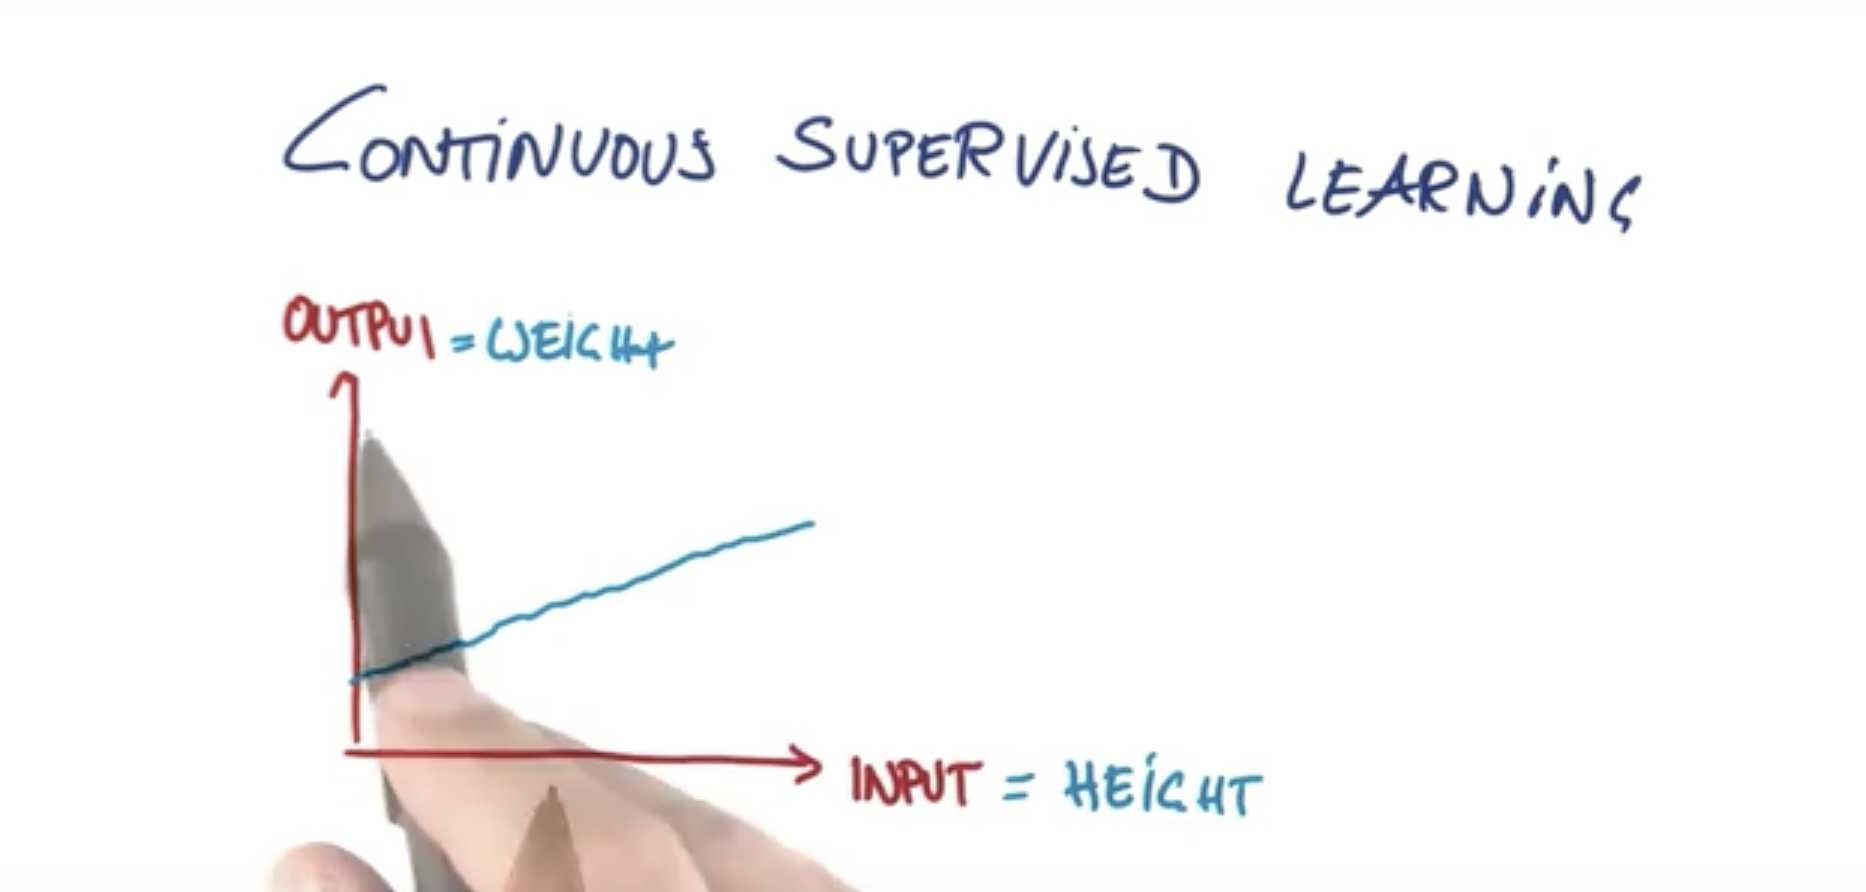 CONTINUOUS SUPERVISED LEARNING
OUTPUT = WEIGHT
INPUT = HEIGHT